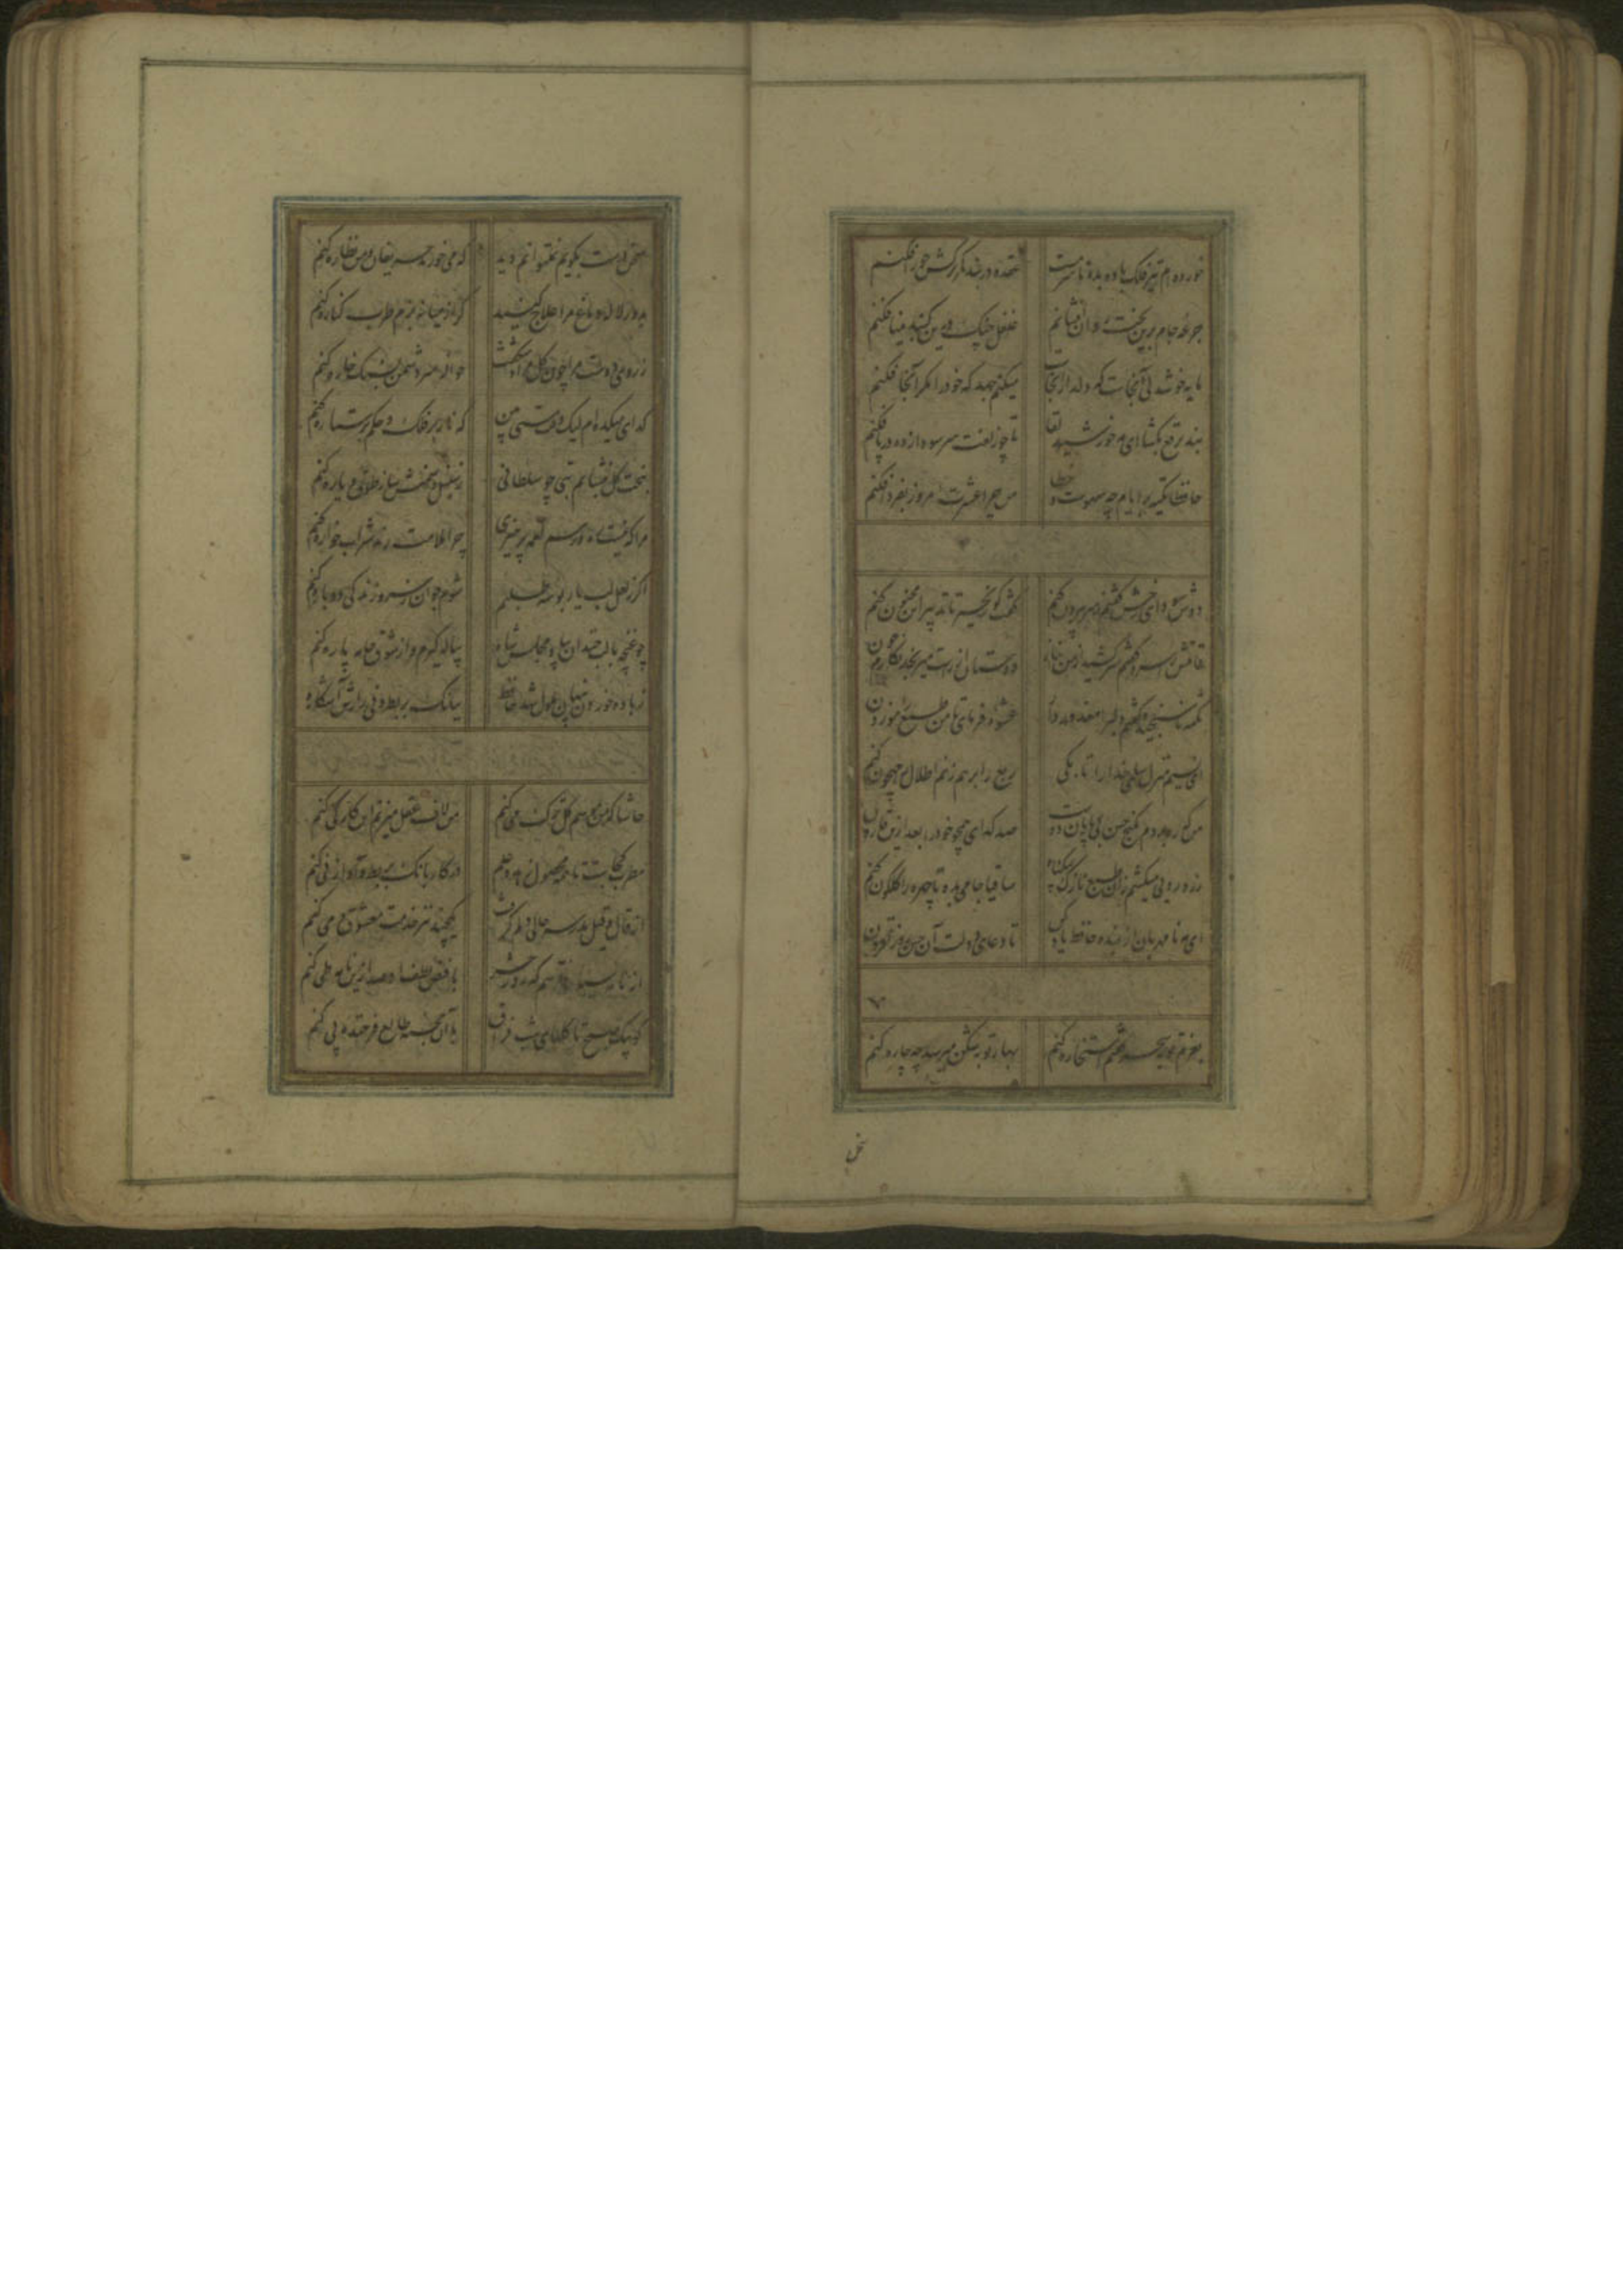 خورده‌ام تیر فلک باده بده تا سرمست
عقده در بند کمر ترکش جوزا فکنم
جرعه جام برین تخت روان افشانم
غلغل چنگ درین گنبد مینا فکنم
مایه خوشدلی آنجاست که دلدار آنجاست
میکنم جهد که خود را مگر آنجا فکنم
بند برقع بگشا ای مه خورشید لقا
تا چو زلفت سر سودازده در پا فکنم
حافظا تکیه بر ایام چو سهوست و خطا
من چرا عشرت امروز بفردا فکنم
دوش سودای رخش گفتم ز سر بیرون کنم
گفت کو زنجیر تا تدبیر این مجنون کنم
قامتش را سرو گفتم سر کشید از من بناز
دوستان از راست میرنجد نگارم چون کنم
نکته ناسنجیده گفتم دلبرا معذور دار
عشوه فرمای تا من طبع را موزون کنم
ای نسیم منزل سلمی خدا را تا بکی
ربع را برهم زنم اطلال را جیحون کنم
من که ره بردم بگنج حسن بی پایان دوست
صد گدای همچو خود را بعد ازین قارون کنم
زردرویی میکشم زان طبع نازک بیگناه
ساقیا جامی بده تا چهره را گلگون کنم
ای مه نامهربان از بنده حافظ یاد کن
تا دعای دولت آن حسن روزافزون کنم
بعزم توبه سحر گفتم استخاره کنم
بهار توبه شکن میرسد چه چاره کنم
سخن درست بگویم نمیتوانم دید
که می خورند حریفان و من نظاره کنم
بدور لاله دماغ مرا علاج کنید
گر از میانه بزم طرب کناره کنم
ز روی دوست مرا چون گل مراد شکفت
حواله سر دشمن بسنگ خاره کنم
گدای میکده‌ام لیک وقت مستی بین
که ناز بر فلک و حکم بر ستاره کنم
بتخت گل بنشانم بتی چو سلطانی
ز سنبل و سمنش ساز طوق و یاره کنم
مرا که نیست ره و رسم لقمه پرهیزی
چرا ملامت رند شرابخواره کنم
اگر ز لعل لب یار بوسه طلبم
شوم جوان ز سر و زندگی دوباره کنم
چو غنچه با لب خندان بیاد مجلس شاه
پیاله گیرم و از شوق جامه پاره کنم
ز باده خوردن پنهان ملول شد حافظ
ببانگ بربط و نی رازش آشکاره کنم
حاشا که من بموسم گل ترک می کنم
من لاف عقل میزنم این کار کی کنم
مطرب کجاست تا همه محصول زهد و علم
در کار بانگ بربط و آواز نی کنم
از قال و قیل مدرسه حالی دلم گرفت
یکچند نیز خدمت معشوق و می کنم
از نامه سیاه نترسم که روز حشر
با فیض لطف او صد ازین نامه طی کنم
کو پیک صبح تا گلهای شب فراق
با آن خجسته طالع فرخنده پی کنم